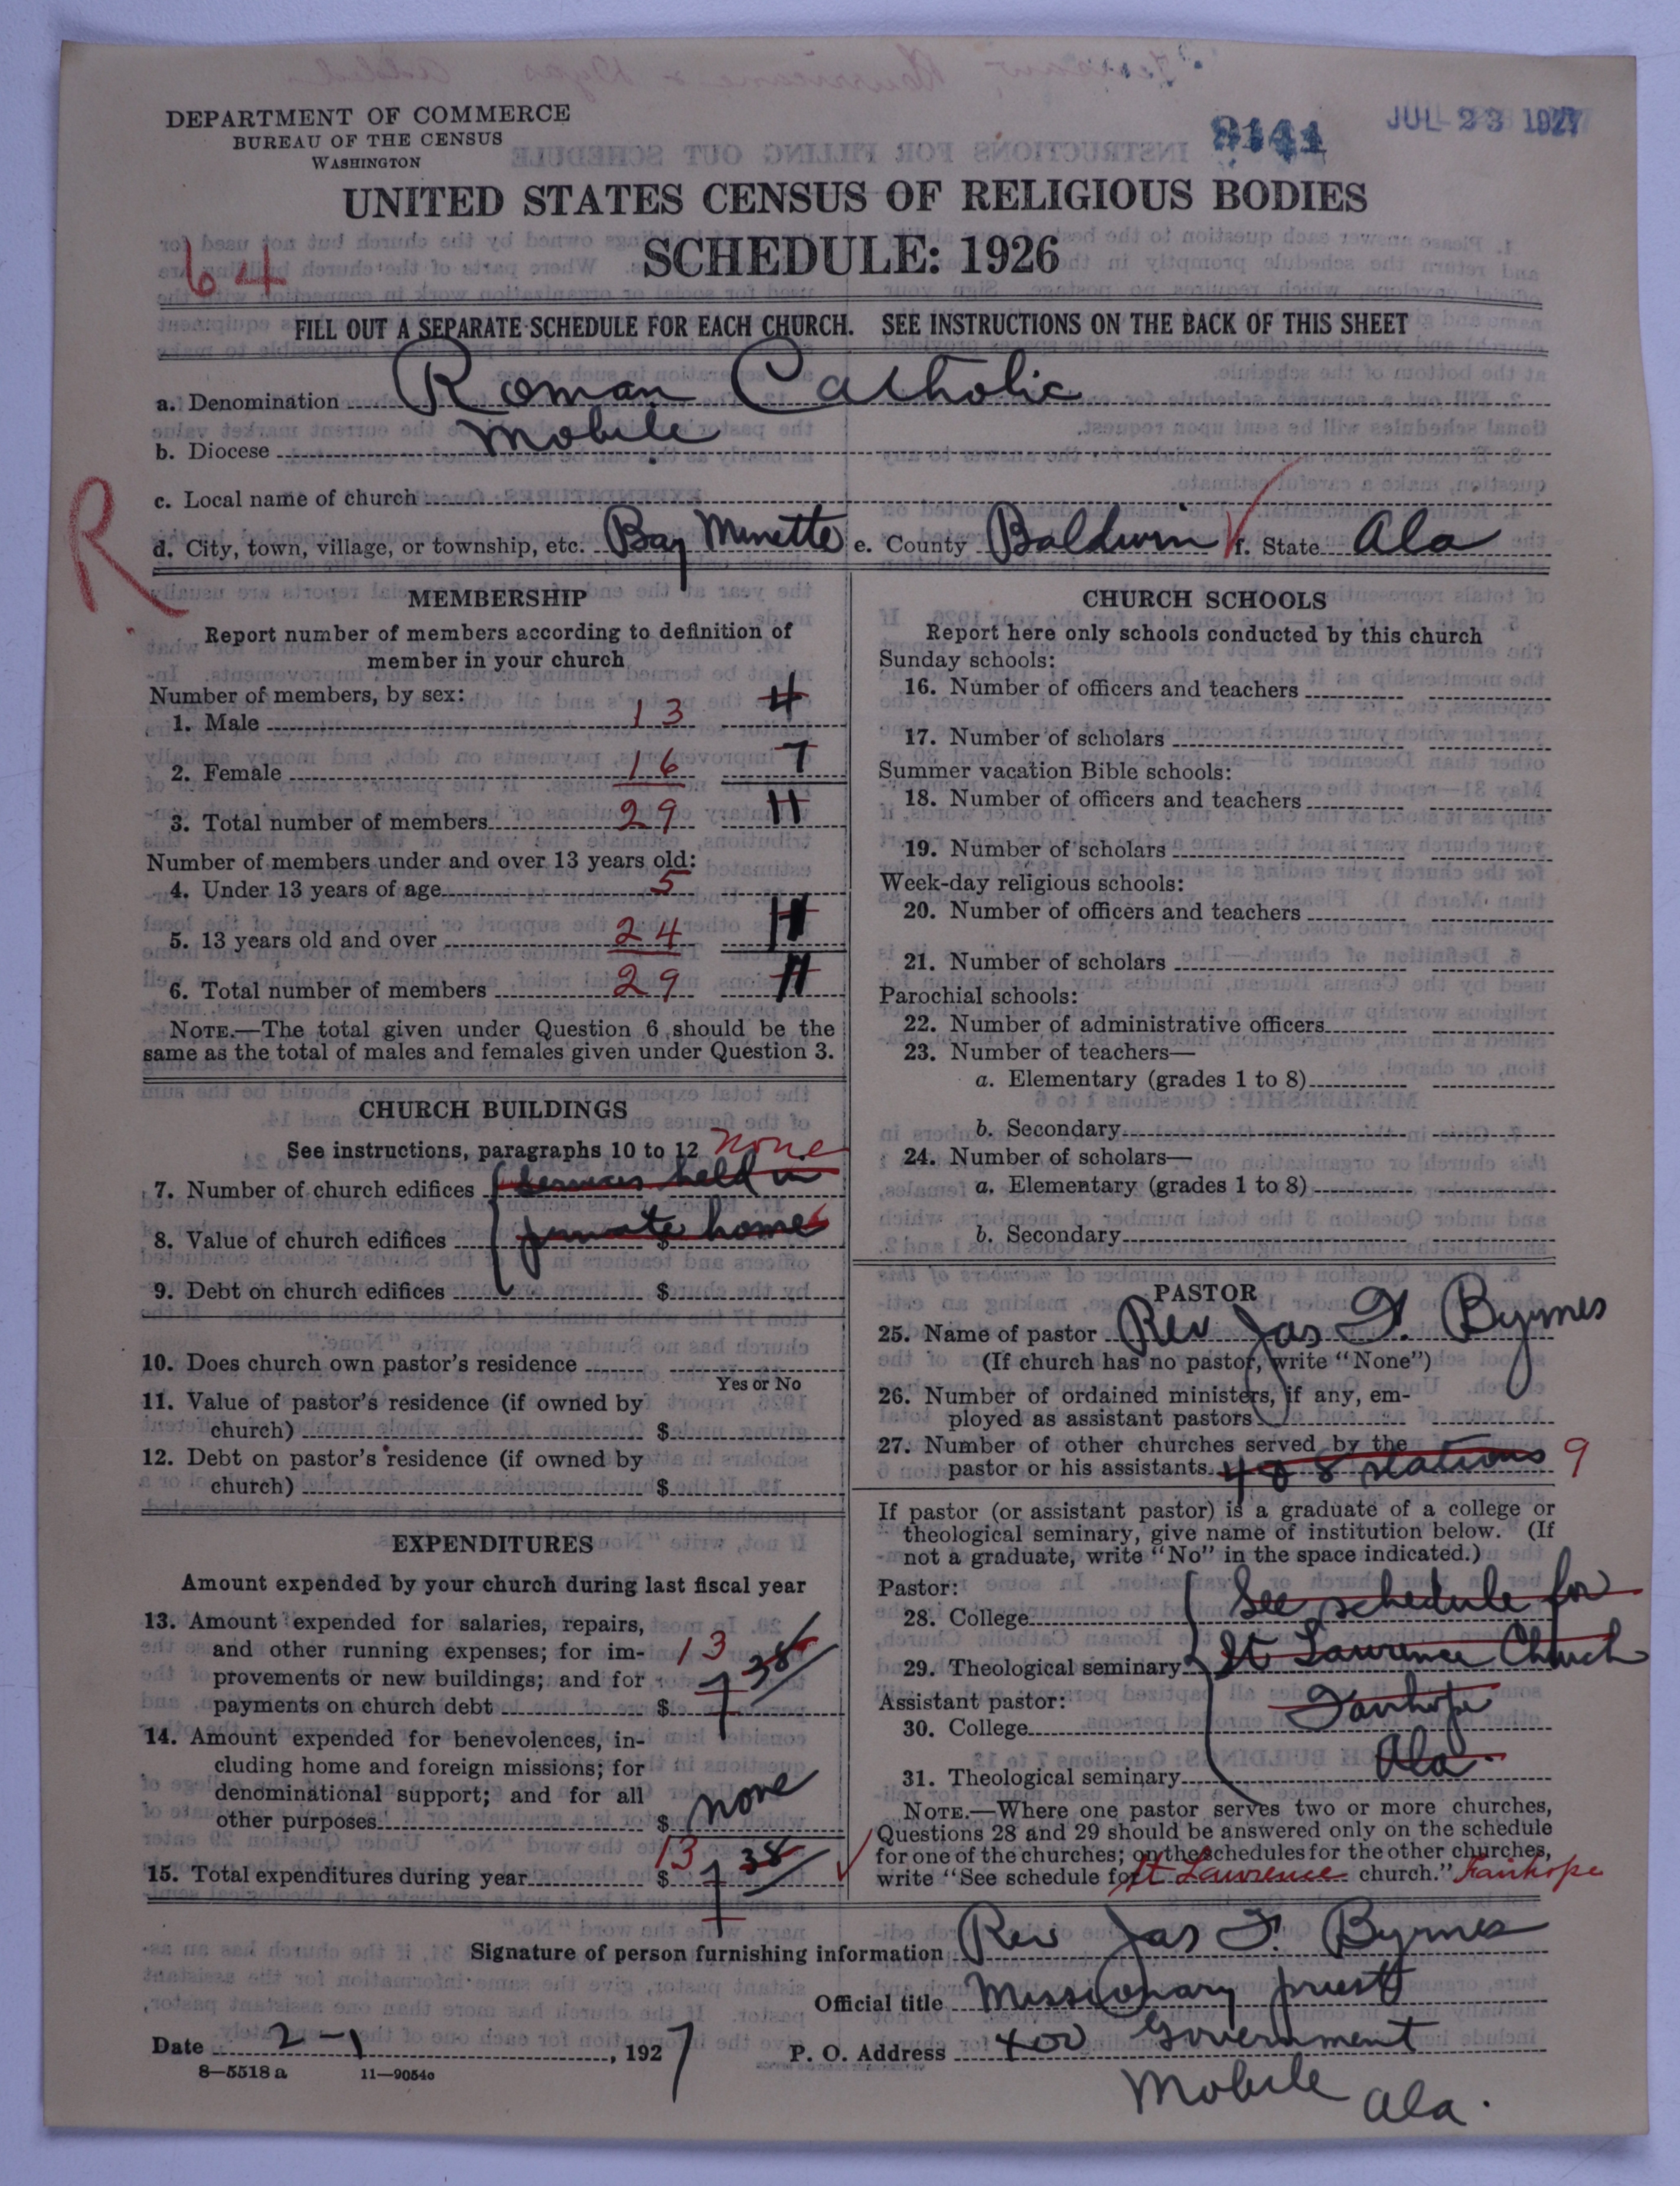 DEPARTMENT OF COMMERCE
BUREAU OF THE CENSUS
WASHINGTON
JUL 23 1927
UNITED STATES CENSUS OF RELIGIOUS BODIES
SCHEDULE: 1926
64
FILL OUT A SEPARATE SCHEDULE FOR EACH CHURCH. SEE INSTRUCTIONS ON THE BACK OF THIS SHEET
a. Denomination Roman Catholic
b. Diocese Mobile
c. Local name of church
R
d. City, town, village, or township, etc. Bay Minette e. County Baldwin f. State Ala
MEMBERSHIP
Report number of members according to definition of
member in your church
Number of members, by sex:
1. Male 13 4
2. Female 16 7
3. Total number of members 29 11
Number of members under and over 13 years old:
4. Under 13 years of age 5
5. 13 years old and over 24 11
6. Total number of members 29 11
NOTE.—The total given under Question 6 should be the
same as the total of males and females given under Question 3.
CHURCH BUILDINGS
See instructions, paragraphs 10 to 12 none
7. Number of church edifices Services held in
8. Value of church edifices private home $
9. Debt on church edifices $
10. Does church own pastor's residence
Yes or No
11. Value of pastor's residence (if owned by
church) $
12. Debt on pastor's residence (if owned by
church) $
EXPENDITURES
Amount expended by your church during last fiscal year
13. Amount expended for salaries, repairs,
and other running expenses; for im-
provements or new buildings; and for
payments on church debt $ 13 38
14. Amount expended for benevolences, in-
cluding home and foreign missions; for
denominational support; and for all
other purposes $ none
15. Total expenditures during year $ 13 38
CHURCH SCHOOLS
Report here only schools conducted by this church
Sunday schools:
16. Number of officers and teachers
17. Number of scholars
Summer vacation Bible schools:
18. Number of officers and teachers
19. Number of scholars
Week-day religious schools:
20. Number of officers and teachers
21. Number of scholars
Parochial schools:
22. Number of administrative officers
23. Number of teachers—
a. Elementary (grades 1 to 8)
b. Secondary
24. Number of scholars—
a. Elementary (grades 1 to 8)
b. Secondary
PASTOR
25. Name of pastor Rev Jas F. Byrnes
(If church has no pastor, write "None")
26. Number of ordained ministers, if any, em-
ployed as assistant pastors
27. Number of other churches served by the
pastor or his assistants 4 & 8 stations 9
If pastor (or assistant pastor) is a graduate of a college or
theological seminary, give name of institution below. (If
not a graduate, write "No" in the space indicated.)
Pastor:
28. College See schedule for
29. Theological seminary St Lawrence Church
Assistant pastor:
30. College Fairhope
31. Theological seminary Ala.
NOTE.—Where one pastor serves two or more churches,
Questions 28 and 29 should be answered only on the schedule
for one of the churches; on the schedules for the other churches,
write "See schedule for St Lawrence church." Fairhope
Signature of person furnishing information Rev Jas F. Byrnes
Official title Missionary priest
Date 2-1, 1927
P. O. Address 400 Government
Mobile Ala.
8—5518a 11—9054o